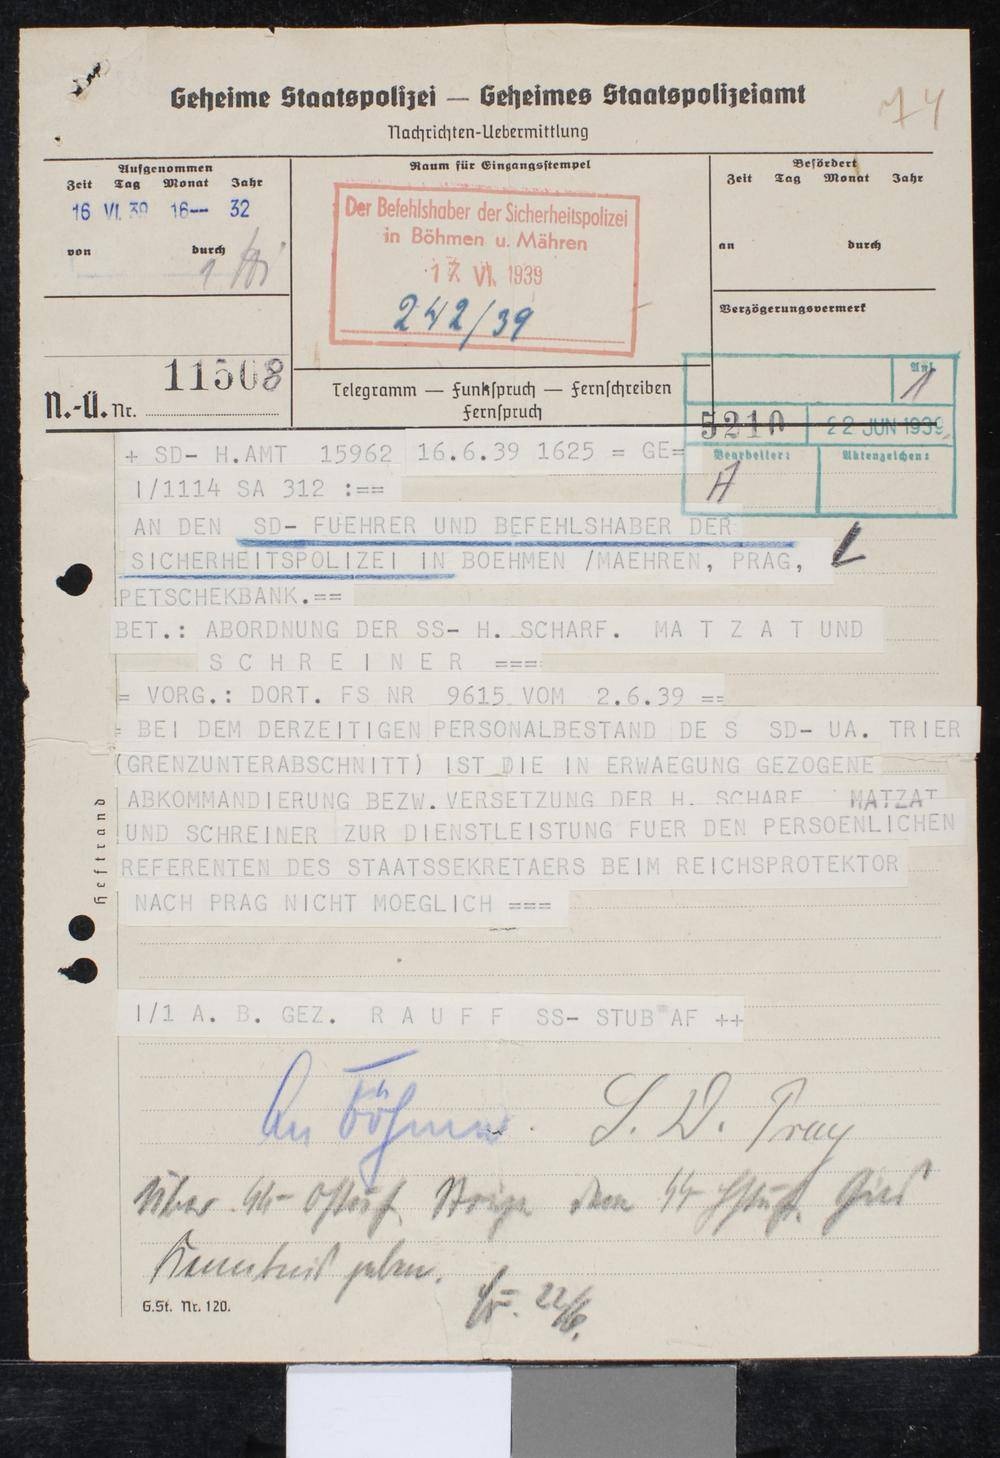 74
Geheime Staatspolizei — Geheimes Staatspolizeiamt
Nachrichten-Uebermittlung
Aufgenommen
Zeit Tag Monat Jahr
16 VI. 39 16-- 32
von durch
Raum für Eingangsstempel
Der Befehlshaber der Sicherheitspolizei
in Böhmen u. Mähren
17. VI. 1939
242/39
Befördert
Zeit Tag Monat Jahr
an durch
Verzögerungsvermerk
N.-Ü. Nr. 11508
Telegramm — Funkspruch — Fernschreiben
Fernspruch
Anl.
1
5210 22 JUN 1939
Bearbeiter: Aktenzeichen:
A
+ SD- H.AMT 15962 16.6.39 1625 = GE=
I/1114 SA 312 :==
AN DEN SD- FUEHRER UND BEFEHLSHABER DER
SICHERHEITSPOLIZEI IN BOEHMEN /MAEHREN, PRAG,
PETSCHEKBANK.==
BET.: ABORDNUNG DER SS- H. SCHARF. M A T Z A T UND
S C H R E I N E R ===
= VORG.: DORT. FS NR 9615 VOM 2.6.39 ==
= BEI DEM DERZEITIGEN PERSONALBESTAND DE S SD- UA. TRIER
(GRENZUNTERABSCHNITT) IST DIE IN ERWAEGUNG GEZOGENE
ABKOMMANDIERUNG BEZW. VERSETZUNG DER H. SCHARF MATZAT
UND SCHREINER ZUR DIENSTLEISTUNG FUER DEN PERSOENLICHEN
REFERENTEN DES STAATSSEKRETAERS BEIM REICHSPROTEKTOR
NACH PRAG NICHT MOEGLICH ===
Heftrand
I/1 A. B. GEZ. R A U F F SS- STUB AF ++
An Böhme S. D. Prag
Über SS- dem SS- Gies
Kenntnis geben.
22/6.
G.St. Nr. 120.